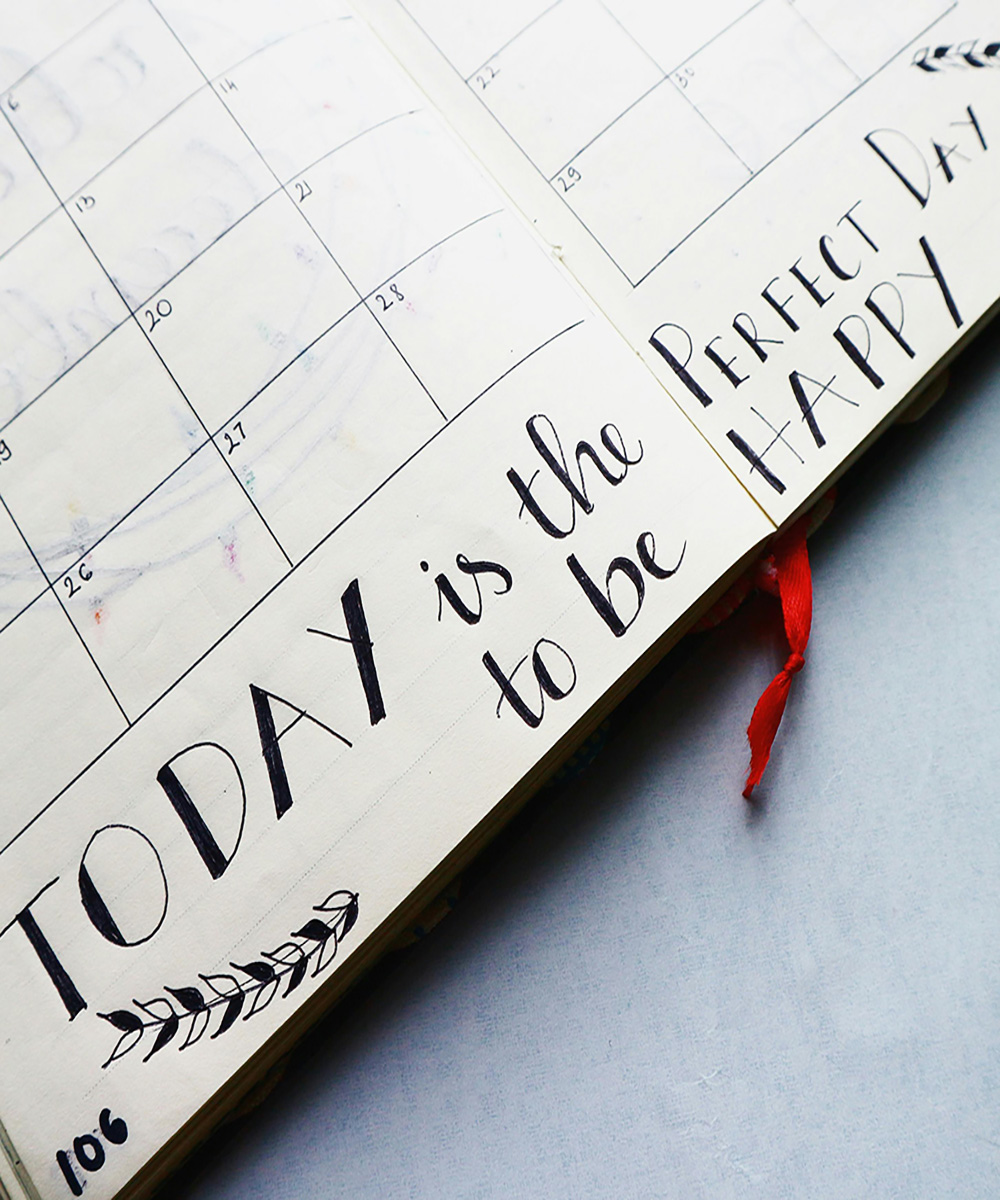 6
13 14
20 21
26 27 28
TODAY is the
to be
106
22
29 30
PERFECT DAY
HAPPY